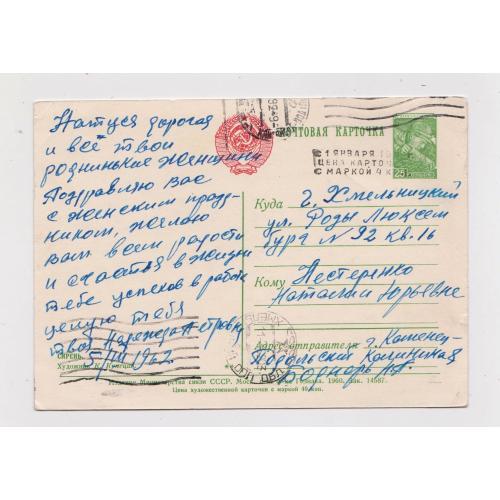 Натуся дорогая
и все твои
роднинькие женщины
Поздравляю Вас
с женским празд-
ником, желаю
вам всем радости
и счастья в жизни
Тебе успехов в работе
целую тебя
твоя Надежда Петровна
5/III 1962
СИРЕНЬ
Художник
ПОЧТОВАЯ КАРТОЧКА
С 1 ЯНВАРЯ 19
ЦЕНА КАРТОЧ
С МАРКОЙ 4 К
25
Куда г. Хмельницкий
ул. Розы Люксем
бург N 92 кв. 16
Кому Нестеренко
Наталии Юрьевне
Адрес отправителя г. Каменец-
Подольский
Боднарь
Издание Министерства связи СССР. Моск 1960. Зак. 14587.
Цена художественной карточки с маркой 40 коп.